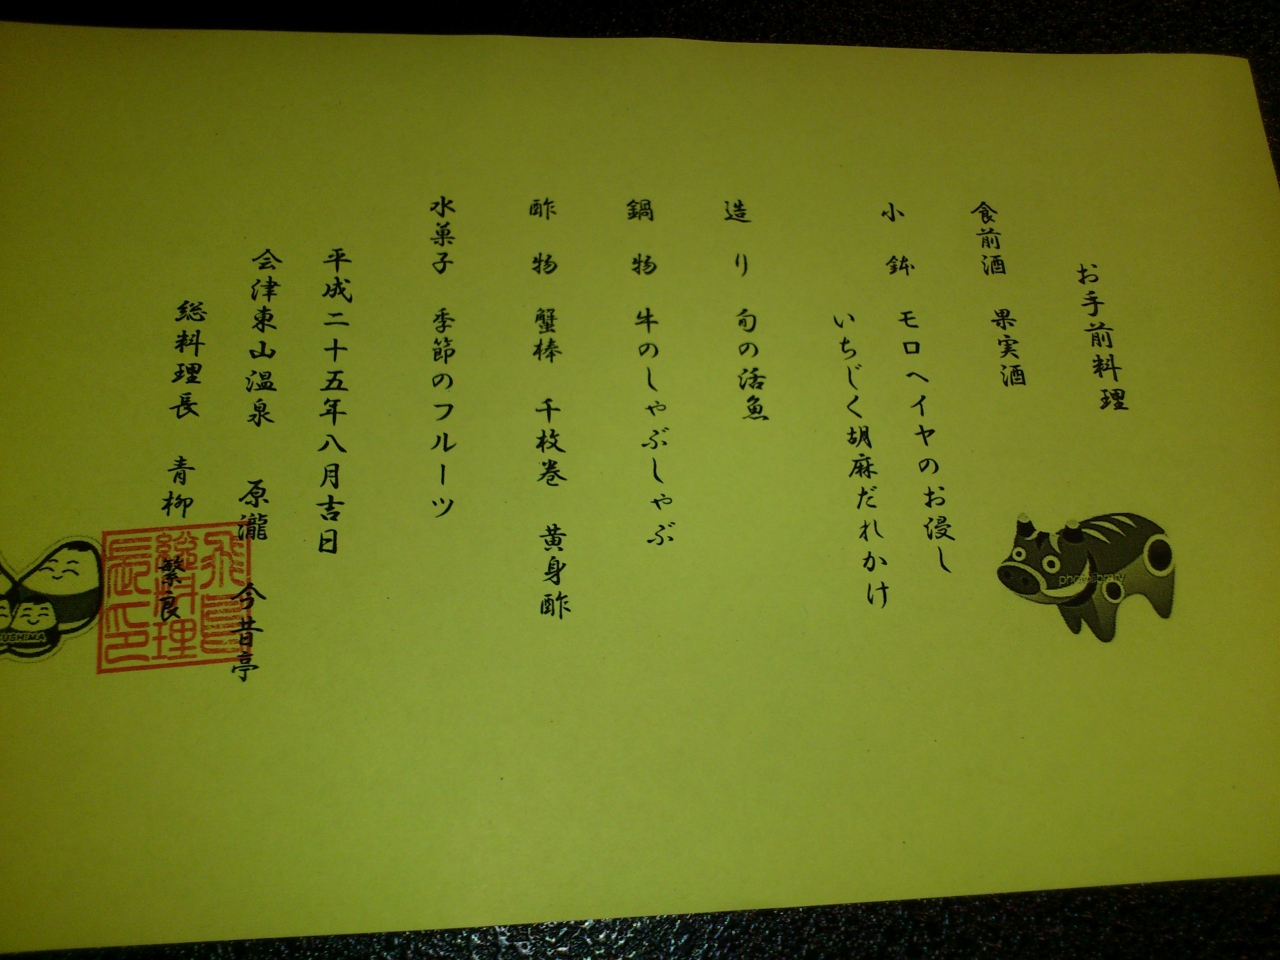 お手前料理
食前酒 果実酒
小鉢 モロヘイヤのお浸し
いちじく胡麻だれかけ
造り 旬の活魚
鍋物 牛のしゃぶしゃぶ
酢物 蟹棒 千枚巻 黄身酢
水菓子 季節のフルーツ
平成二十五年八月吉日
会津東山温泉 原瀧 今昔亭
総料理長 青柳 繁良
総料理
長印
USHIMA